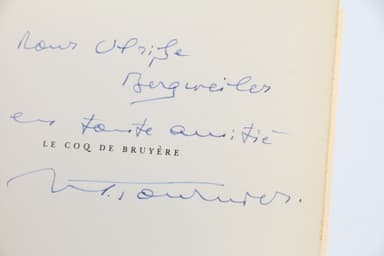 Pour Ulrike
Bergweiler
en toute amitié
LE COQ DE BRUYÈRE
M. Tournier.